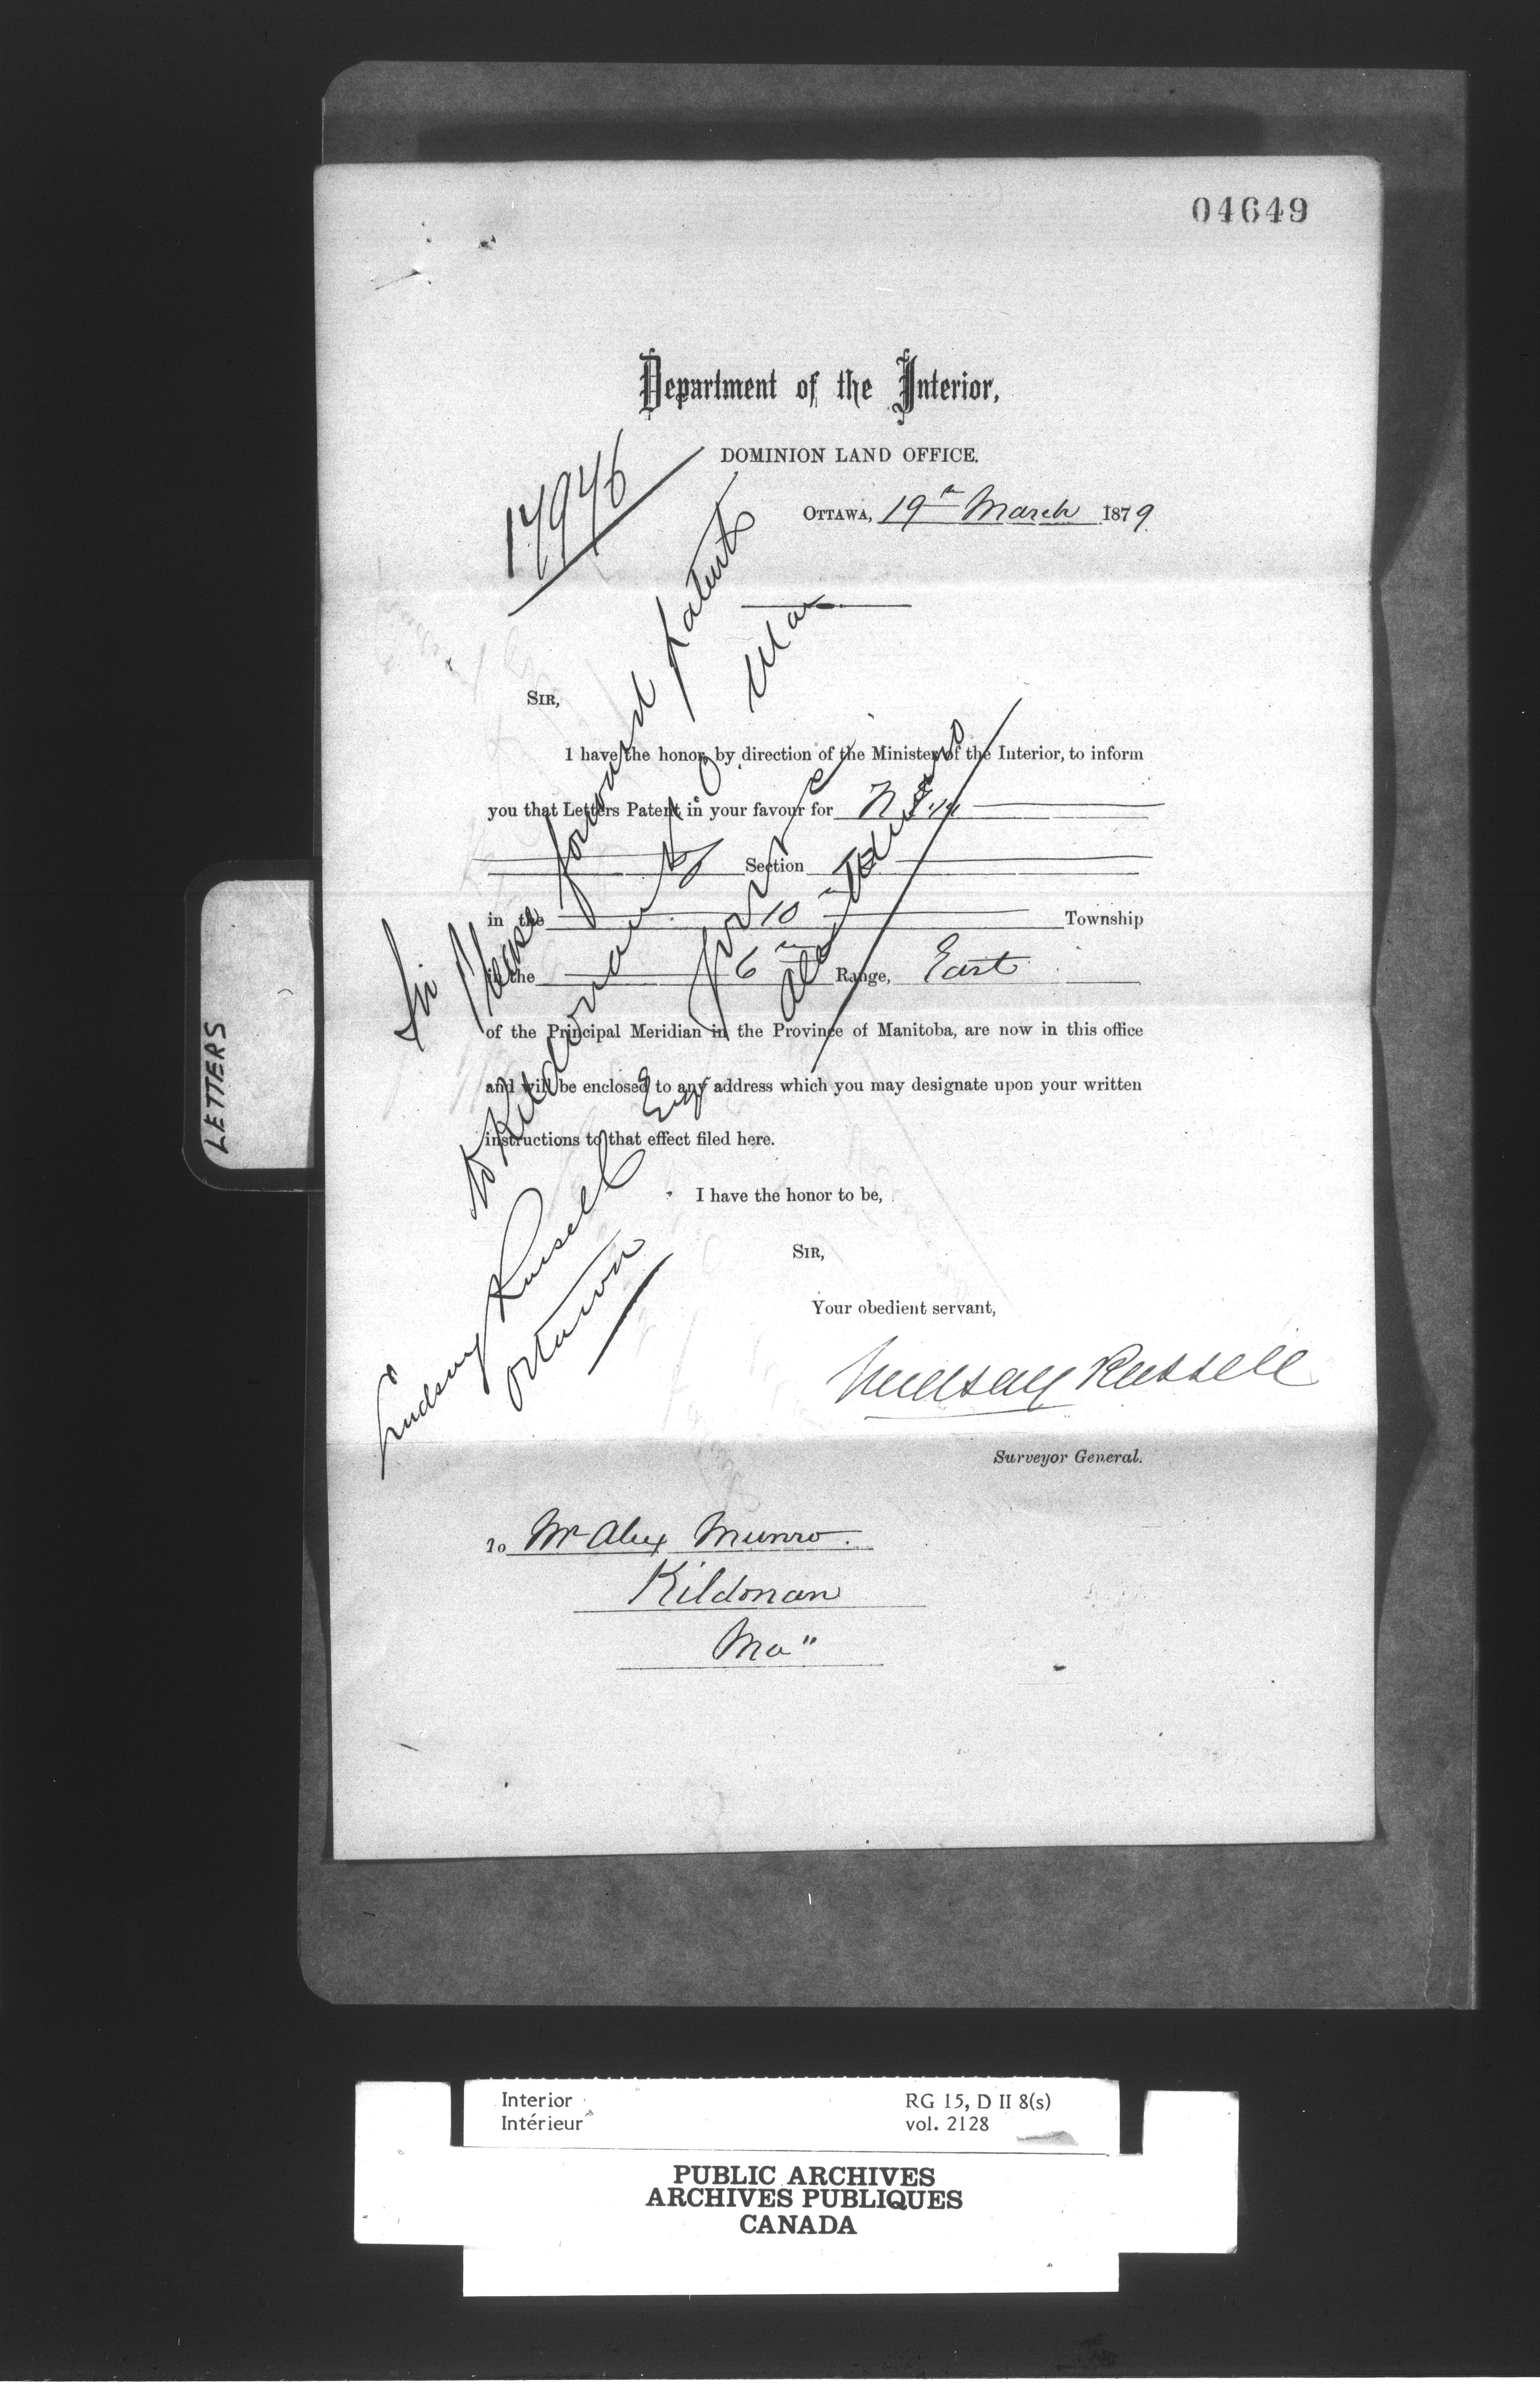 04649
Department of the Interior,
DOMINION LAND OFFICE.
17976
OTTAWA, 19th March 1879
SIR,
I have the honor, by direction of the Minister of the Interior, to inform
you that Letters Patent in your favour for N
Section
in the 10th Township
in the 6th Range, East
of the Principal Meridian in the Province of Manitoba, are now in this office
and will be enclosed to any address which you may designate upon your written
instructions to that effect filed here.
I have the honor to be,
SIR,
Your obedient servant,
Lindsay Russell
Surveyor General.
To Mr Alex Munro.
Kildonan
Ma"
Sir Please forward patent
to Kildonan
Man
yours
Alex Munro
Lindsay Russell Esq
Ottawa
LETTERS
Interior
Intérieur
RG 15, D II 8(s)
vol. 2128
PUBLIC ARCHIVES
ARCHIVES PUBLIQUES
CANADA